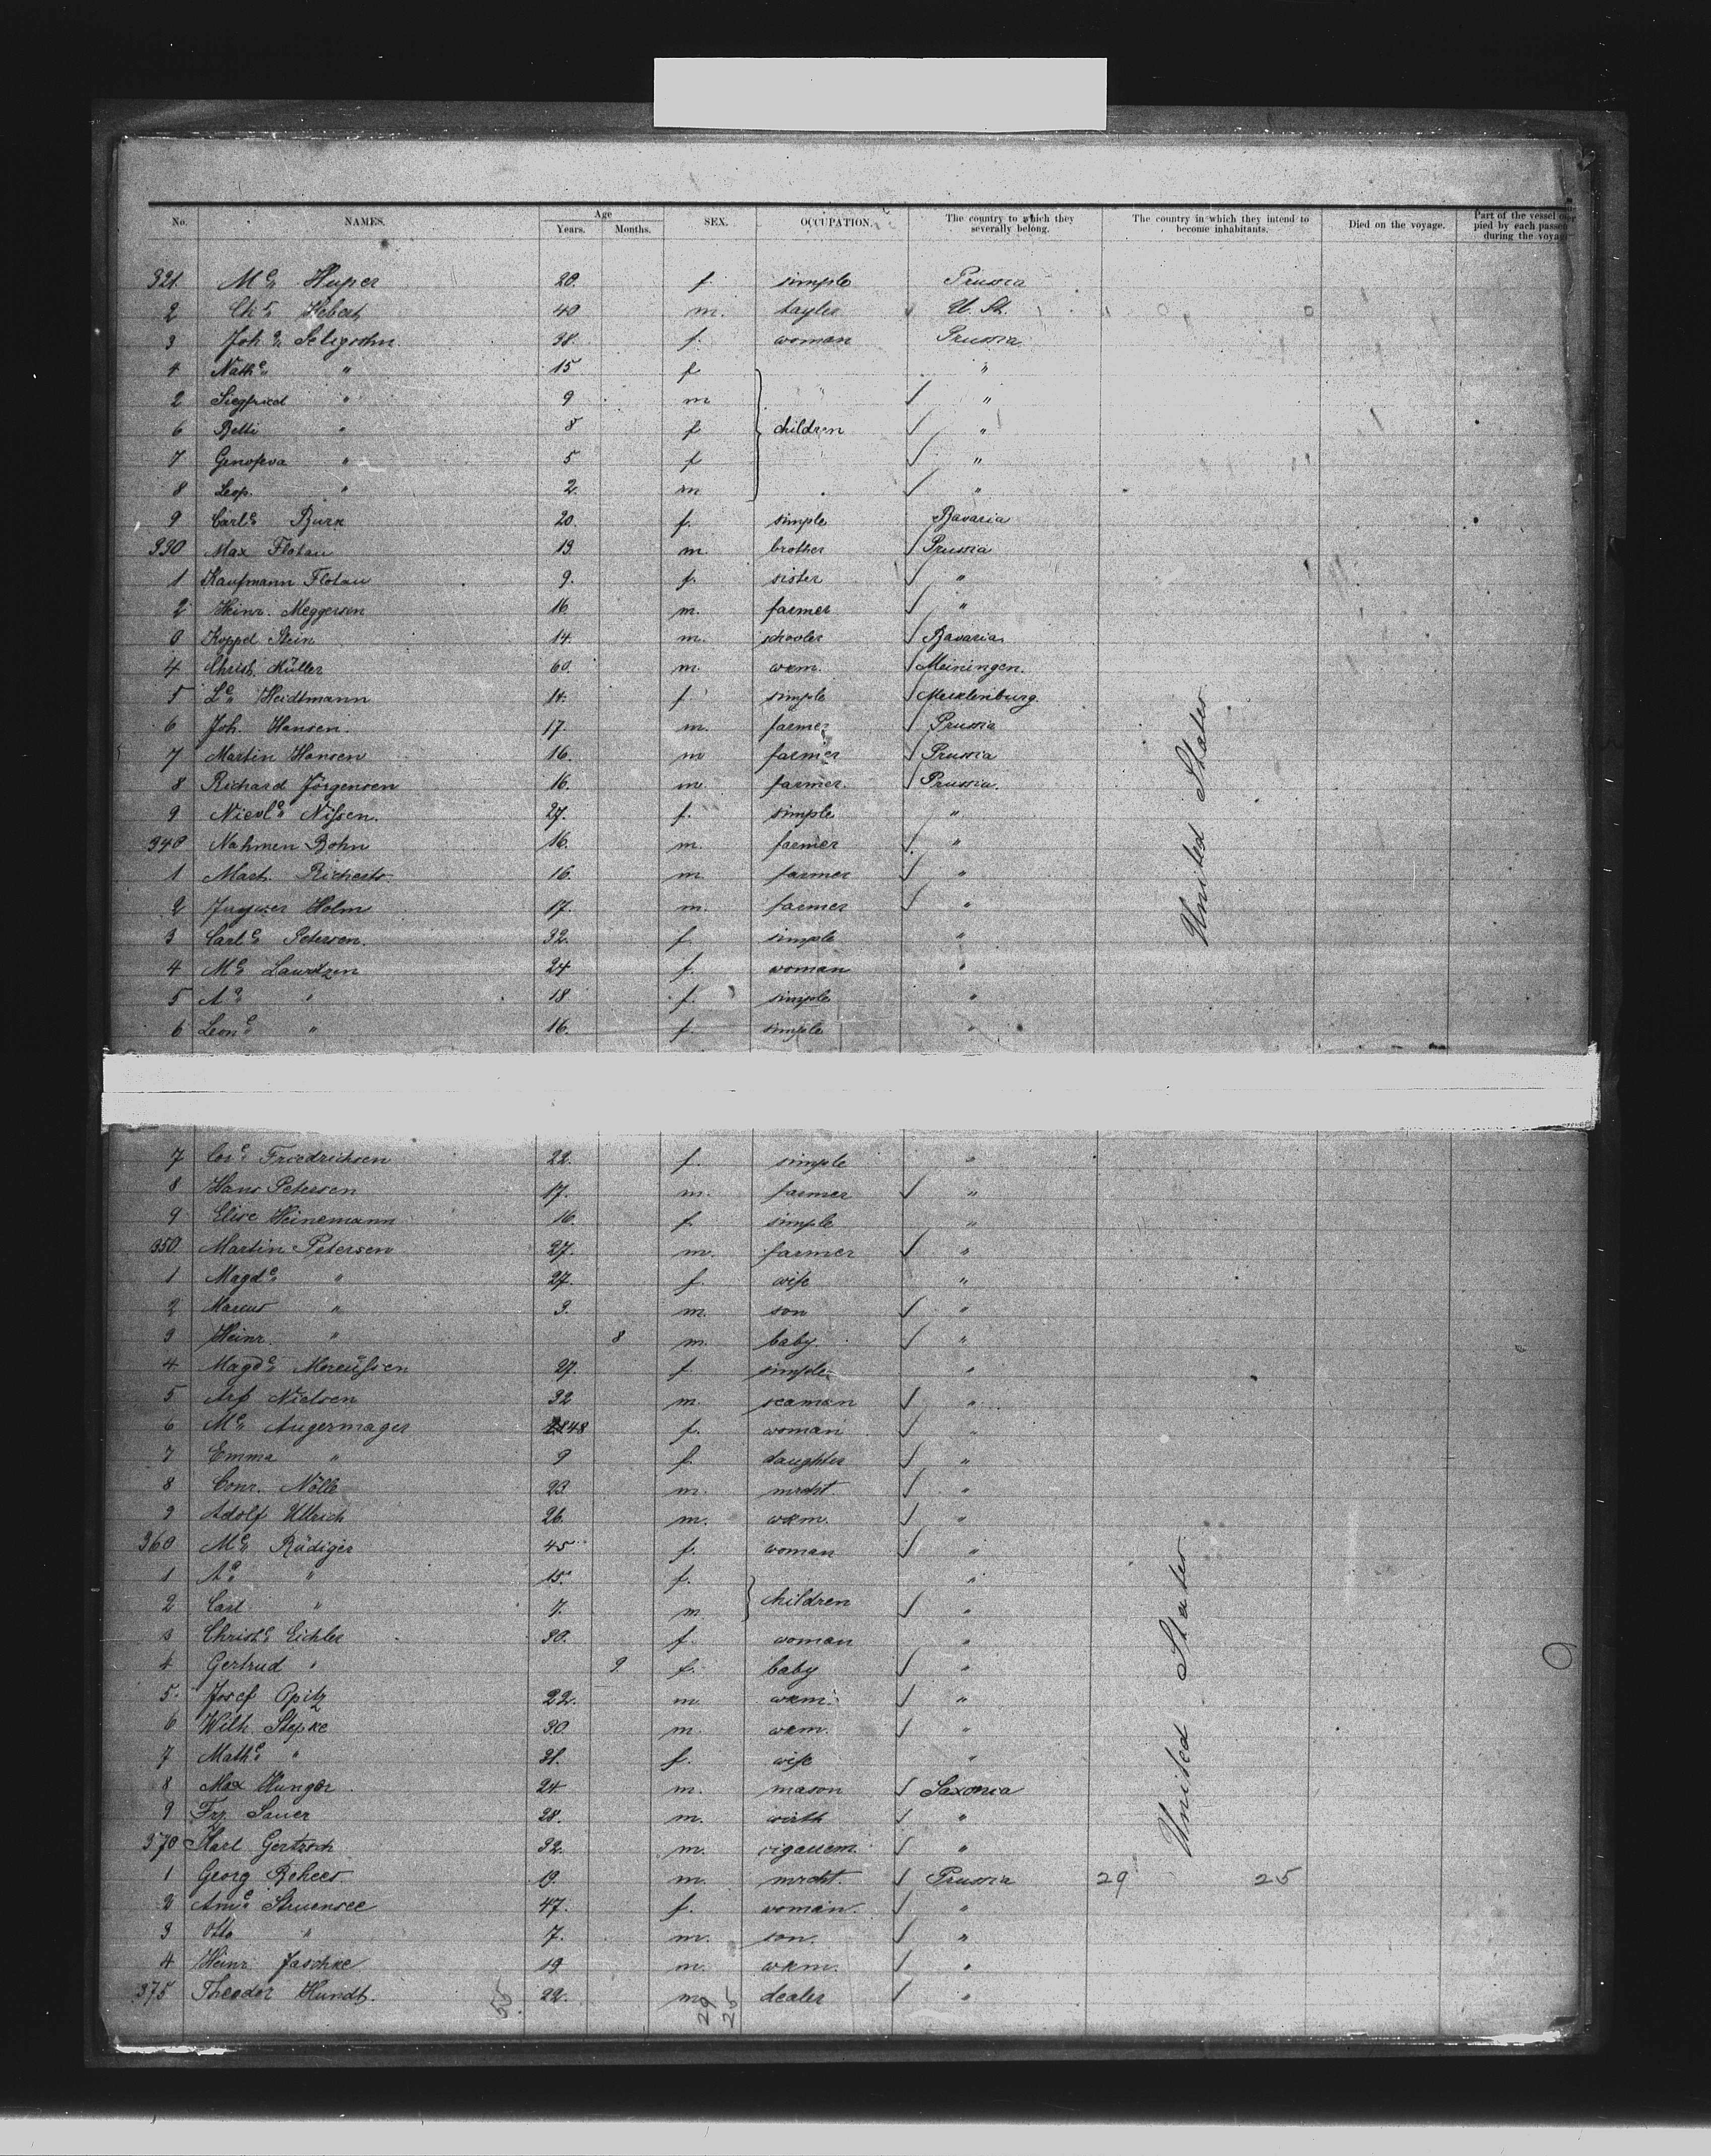 No. NAMES. Age Years. Months. SEX. OCCUPATION. The country to which they severally belong. The country in which they intend to become inhabitants. Died on the voyage. Part of the vessel pied by each during the
321 Mª Huper 20. f. simple Prussia
2 Hebert 40 m. tayler U. St.
3 Joh.ª Seligsohn 38. f. woman Prussia
4 Nathª " 15 f "
2 Siegfried " 9 m "
6 Betti " 8 f children "
7 Genofeva " 5 f "
8 Leop. " 2. m "
9 Carlª 20. f. simple Bavaria
330 Max Flotau 13 m. brother Prussia
1 Kaufmann Flotau 9. f. sister "
2 Heinr. Meggersen 16. m. farmer "
Koppel Stein 14. m. schooler Bavaria
4 Christ. Müller 60. m. wkm. Meiningen.
5 Lª Heidtmann f simple Mecklenburg.
6 Joh. Hansen. 17. m. farmer Prussia
7 Martin Hansen 16. m farmer Prussia
8 Richard Jörgensen 16. m. farmer. Prussia.
9 Nicolª Nissen. 27. f. simple "
340 Nahmen Bohn 16. m. farmer "
1 Mart. 16. m. farmer "
2 Holm 17. m. farmer "
3 Carlª Petersen. 32. f. simple "
4 Mª Lauritzen 24 f. woman "
5 Aª " 18 f. simple "
6 Leonª " 16. f. simple "
United States
7 Friedrichsen 22. f. simple "
8 Hans Petersen 17. m. farmer "
9 Elise Heinemann 16. f. simple "
350 Martin Petersen 27. m. farmer "
1 Magdª " 27. f. wife "
2 Marcus " 3. m. son "
3 Heinr. " 8 m. baby. "
4 Magdª 27. f. simple "
5 Nielsen 32 m. seaman "
6 Mª 48 f. woman "
7 Emma " 9 f. daughter "
8 Conr. Nölle 23 m. mrcht. "
9 Adolf Ullrich 26. m. wkm. "
360 Mª Rüdiger 45 f. woman "
1 Aª " 15. f. children "
2 Carl " 7. m. "
3 Christª Eichler 30. f. woman "
4 Gertrud " 9 f. baby "
5. Josef Opitz 22. m wkm. "
6 Wilh. Stepke 30. m. wkm. "
7 Mathª " 31. f. wife "
8 Max Hunger 24 m. mason Saxonia
9 Frz. Sauer 28. m. wirth "
370 Karl Gertzsch 32. m. "
1 Georg 19. m. mrcht. Prussia 29 25
2 Struensee 47. f. woman. "
3 Otto " 7. m. son. "
4 Heinr. Jaschke 19 m. wkm. "
375 Theodor Hundt. 22. m. dealer "
United States
55 29 25